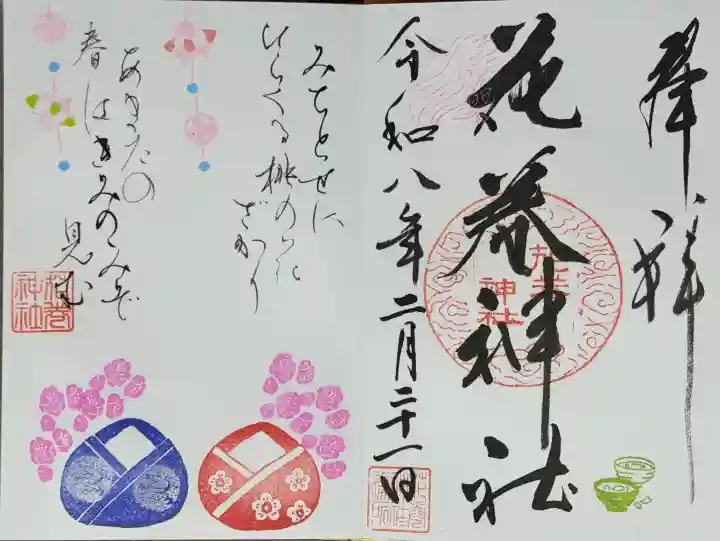 奉拝
花巻神社
花巻
神社
令和八年二月二十一日
みちとせに
ひらくる桃の花
ざかり
あまたの
春はきみのみぞ
見む
花巻
神社